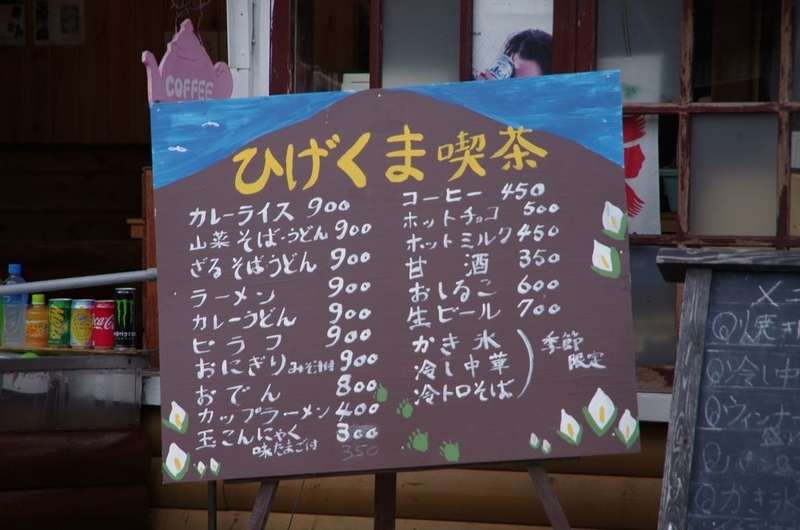 COFFEE
ひげくま喫茶
カレーライス 900
山菜そば・うどん 900
ざるそばうどん 900
ラーメン 900
カレーうどん 900
ピラフ 900
おにぎり みそ汁付 900
おでん 800
カップラーメン 400
玉こんにゃく 300
味たまご付 350
コーヒー 450
ホットチョコ 500
ホットミルク 450
甘酒 350
おしるこ 600
生ビール 700
かき氷
冷し中華
冷トロそば
季節
限定
Coca-Cola
MONSTER
メニ
焼き
冷し中
ウィンナー
かき氷